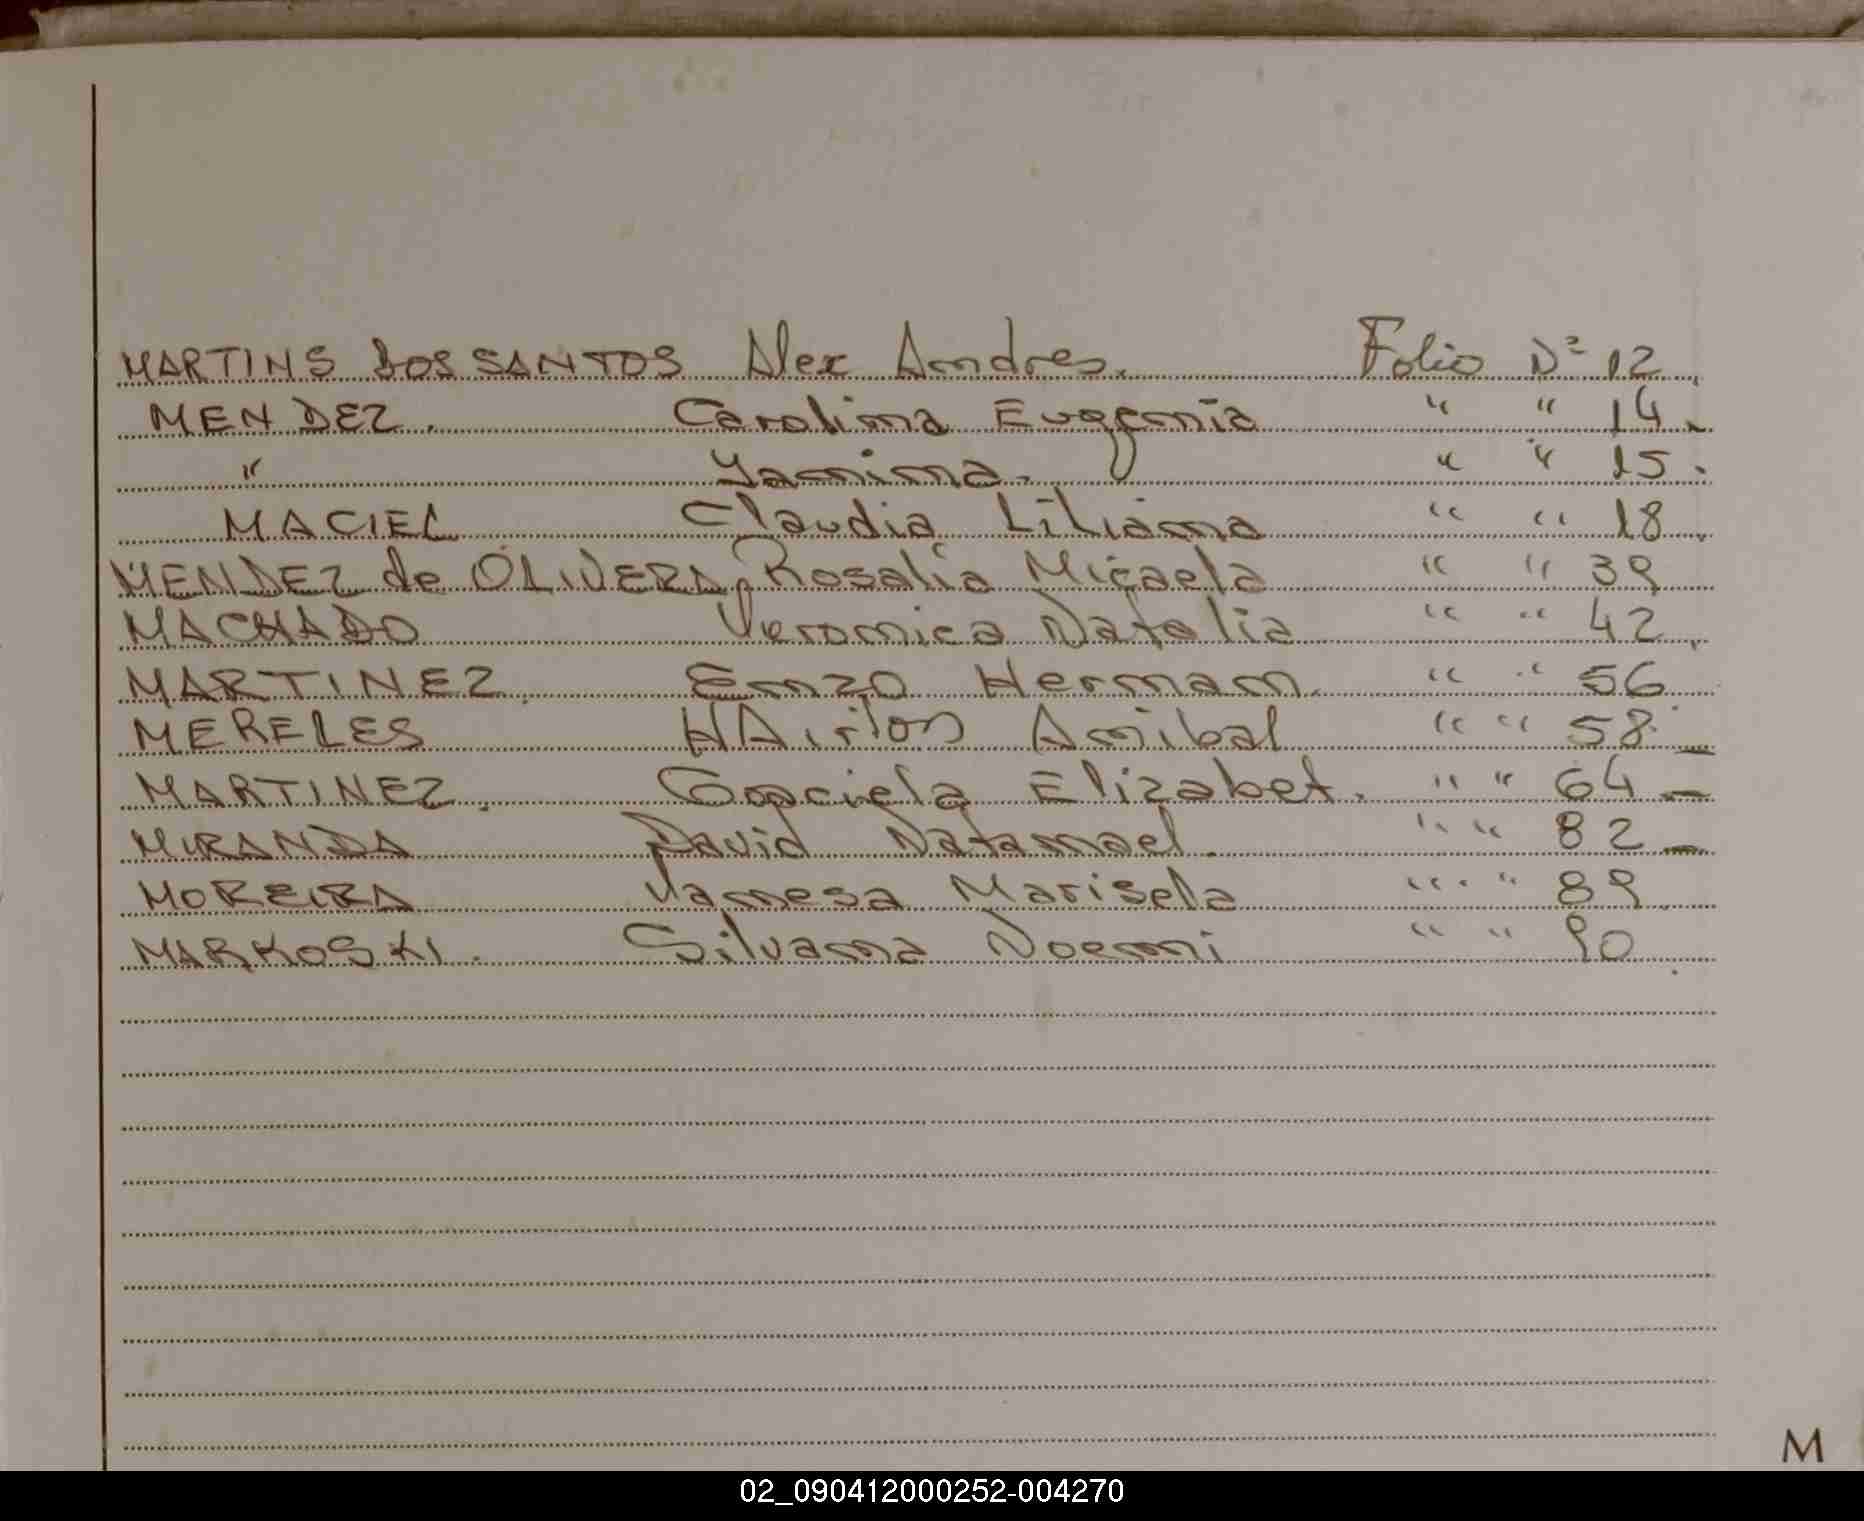 MARTINS DOS SANTOS Alex Andres. Folio Nº 12
MENDEZ. Carolina Eugenia " " 14
" Yanina. " " 15.
MACIEL Claudia Liliana " " 18
MENDEZ de OLIVERA, Rosalia Micaela " " 39
MACHADO Veronica Natalia " " 42
MARTINEZ. Enzo Hernan. " " 56
MERELES Anibal " " 58
MARTINEZ. Graciela Elizabet. " " 64
MIRANDA David Natanael. " " 82
MOREIRA Vanesa Marisela " " 89
MARKOSKI. Silvana Noemi " " 90
M
02_090412000252-004270